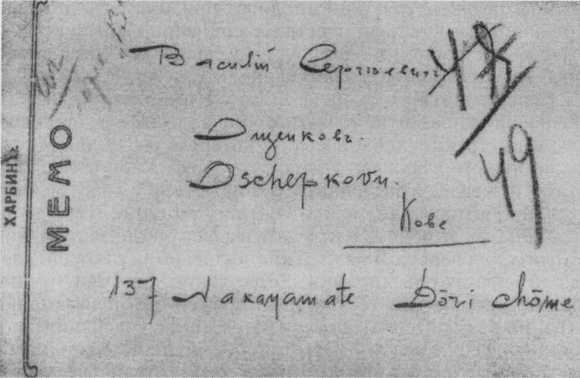 ХАРБИНЪ
МЕМО
Василій Сергѣевичъ
Ощепковъ.
Oschepkovu.
Kobe
49
137 Nakayamate Dōri chōme